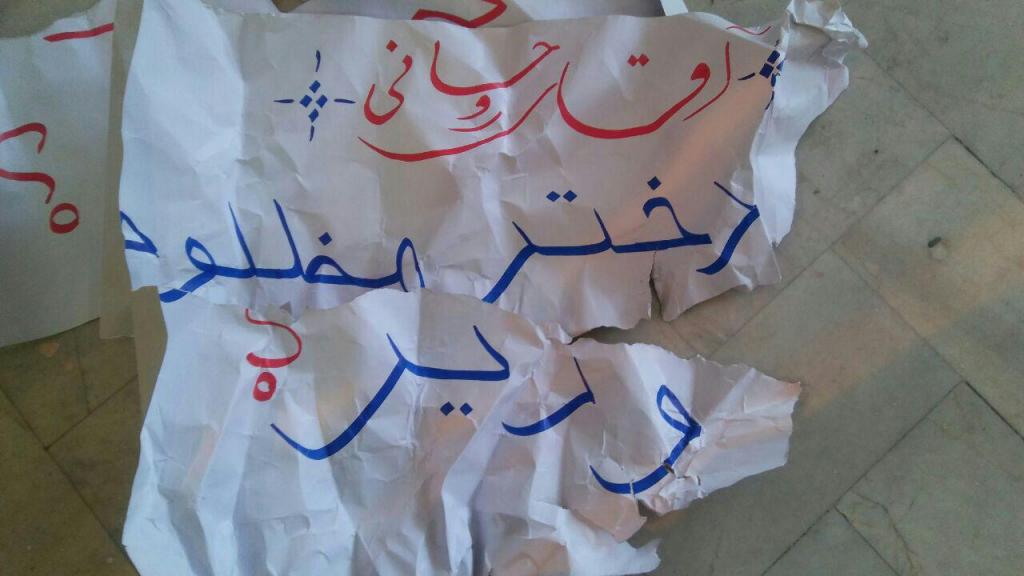 آقای روحانی
دختر مظلوم
وزیر ؟